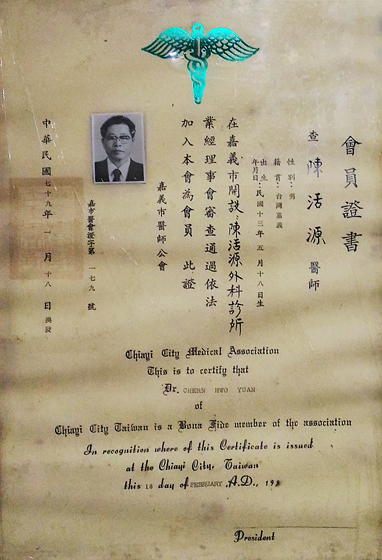 會員證書
查 陳活源 醫師
性別：男
籍貫：台灣嘉義
出生年月日：民國十三年五月十八日生
在嘉義市開設：陳活源外科診所
業經理事會審查通過依法
加入本會為會員 此證
嘉義市醫師公會
嘉市醫會證字第一七九號
中華民國七十九年一月十八日
Chiayi City Medical Association
This is to certify that
Dr. CHERN HWO YUAN
of
Chiayi City Taiwan is a Bona Fide member of the association
In recognition where of this Certificate is issued
at the Chiayi City, Taiwan
this 18 day of FEBRUARY A.D.,
President